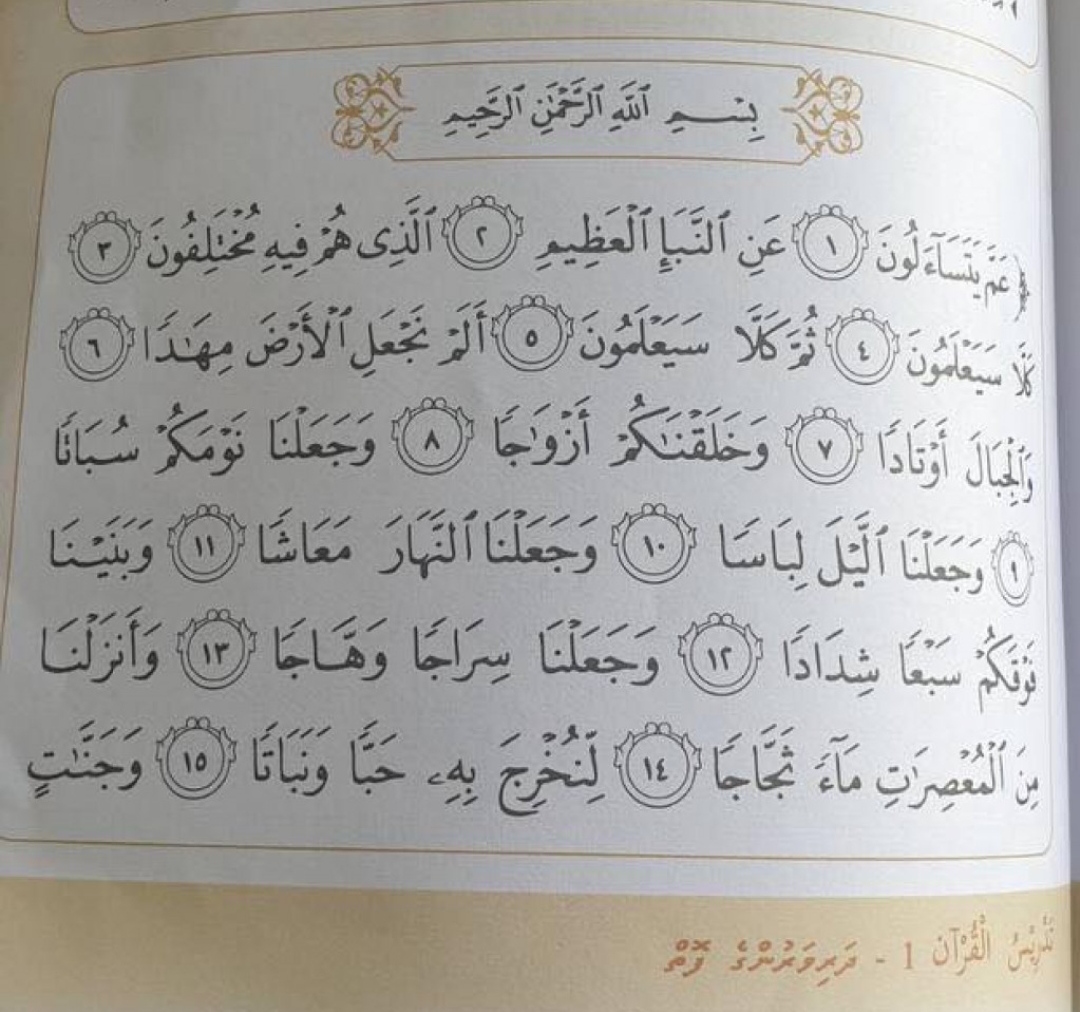 بِسْمِ ٱللَّهِ ٱلرَّحْمَٰنِ ٱلرَّحِيمِ
﴿عَمَّ يَتَسَآءَلُونَ ١ عَنِ ٱلنَّبَإِ ٱلْعَظِيمِ ٢ ٱلَّذِى هُمْ فِيهِ مُخْتَلِفُونَ ٣
كَلَّا سَيَعْلَمُونَ ٤ ثُمَّ كَلَّا سَيَعْلَمُونَ ٥ أَلَمْ نَجْعَلِ ٱلْأَرْضَ مِهَٰدًا ٦
وَٱلْجِبَالَ أَوْتَادًا ٧ وَخَلَقْنَٰكُمْ أَزْوَٰجًا ٨ وَجَعَلْنَا نَوْمَكُمْ سُبَاتًا
٩ وَجَعَلْنَا ٱلَّيْلَ لِبَاسًا ١٠ وَجَعَلْنَا ٱلنَّهَارَ مَعَاشًا ١١ وَبَنَيْنَا
فَوْقَكُمْ سَبْعًا شِدَادًا ١٢ وَجَعَلْنَا سِرَاجًا وَهَّاجًا ١٣ وَأَنزَلْنَا
مِنَ ٱلْمُعْصِرَٰتِ مَآءً ثَجَّاجًا ١٤ لِّنُخْرِجَ بِهِۦ حَبًّا وَنَبَاتًا ١٥ وَجَنَّٰتٍ
تَدْرِيْسُ الْقُرْآن 1 - ދަރިވަރުންގެ ފޮތް